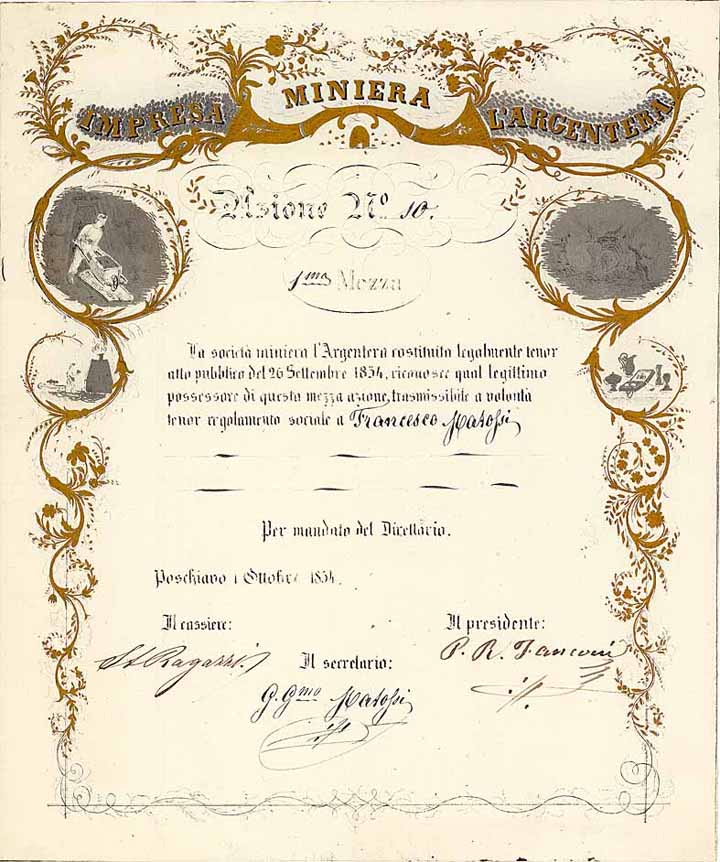 IMPRESA MINIERA L'ARGENTERA
Azione Nº 10.
1ma Mezza
La società miniera l'Argentera costituita legalmente tenor
atto pubblico del 26 Settembre 1854, riconosce qual legittimo
possessore di questa mezza azione, trasmissibile a volontà
tenor regolamento sociale a Francesco Marossi
Per mandato del Direttorio.
Poschiavo 1 Ottobre 1854.
Il cassiere: Il presidente:
St Ragazzi P. R. Zanconi
Il secretario:
G. Gmo Marossi